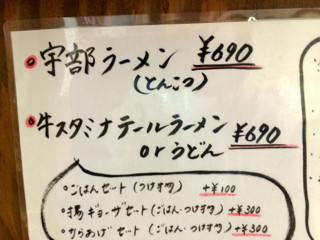 宇部ラーメン ¥690
(とんこつ)
牛スタミナテールラーメン ¥690
orうどん
ごはんセット(つけ物) +¥100
揚ギョーザセット(ごはん・つけ物) +¥300
からあげセット(ごはん・つけ物) +¥300